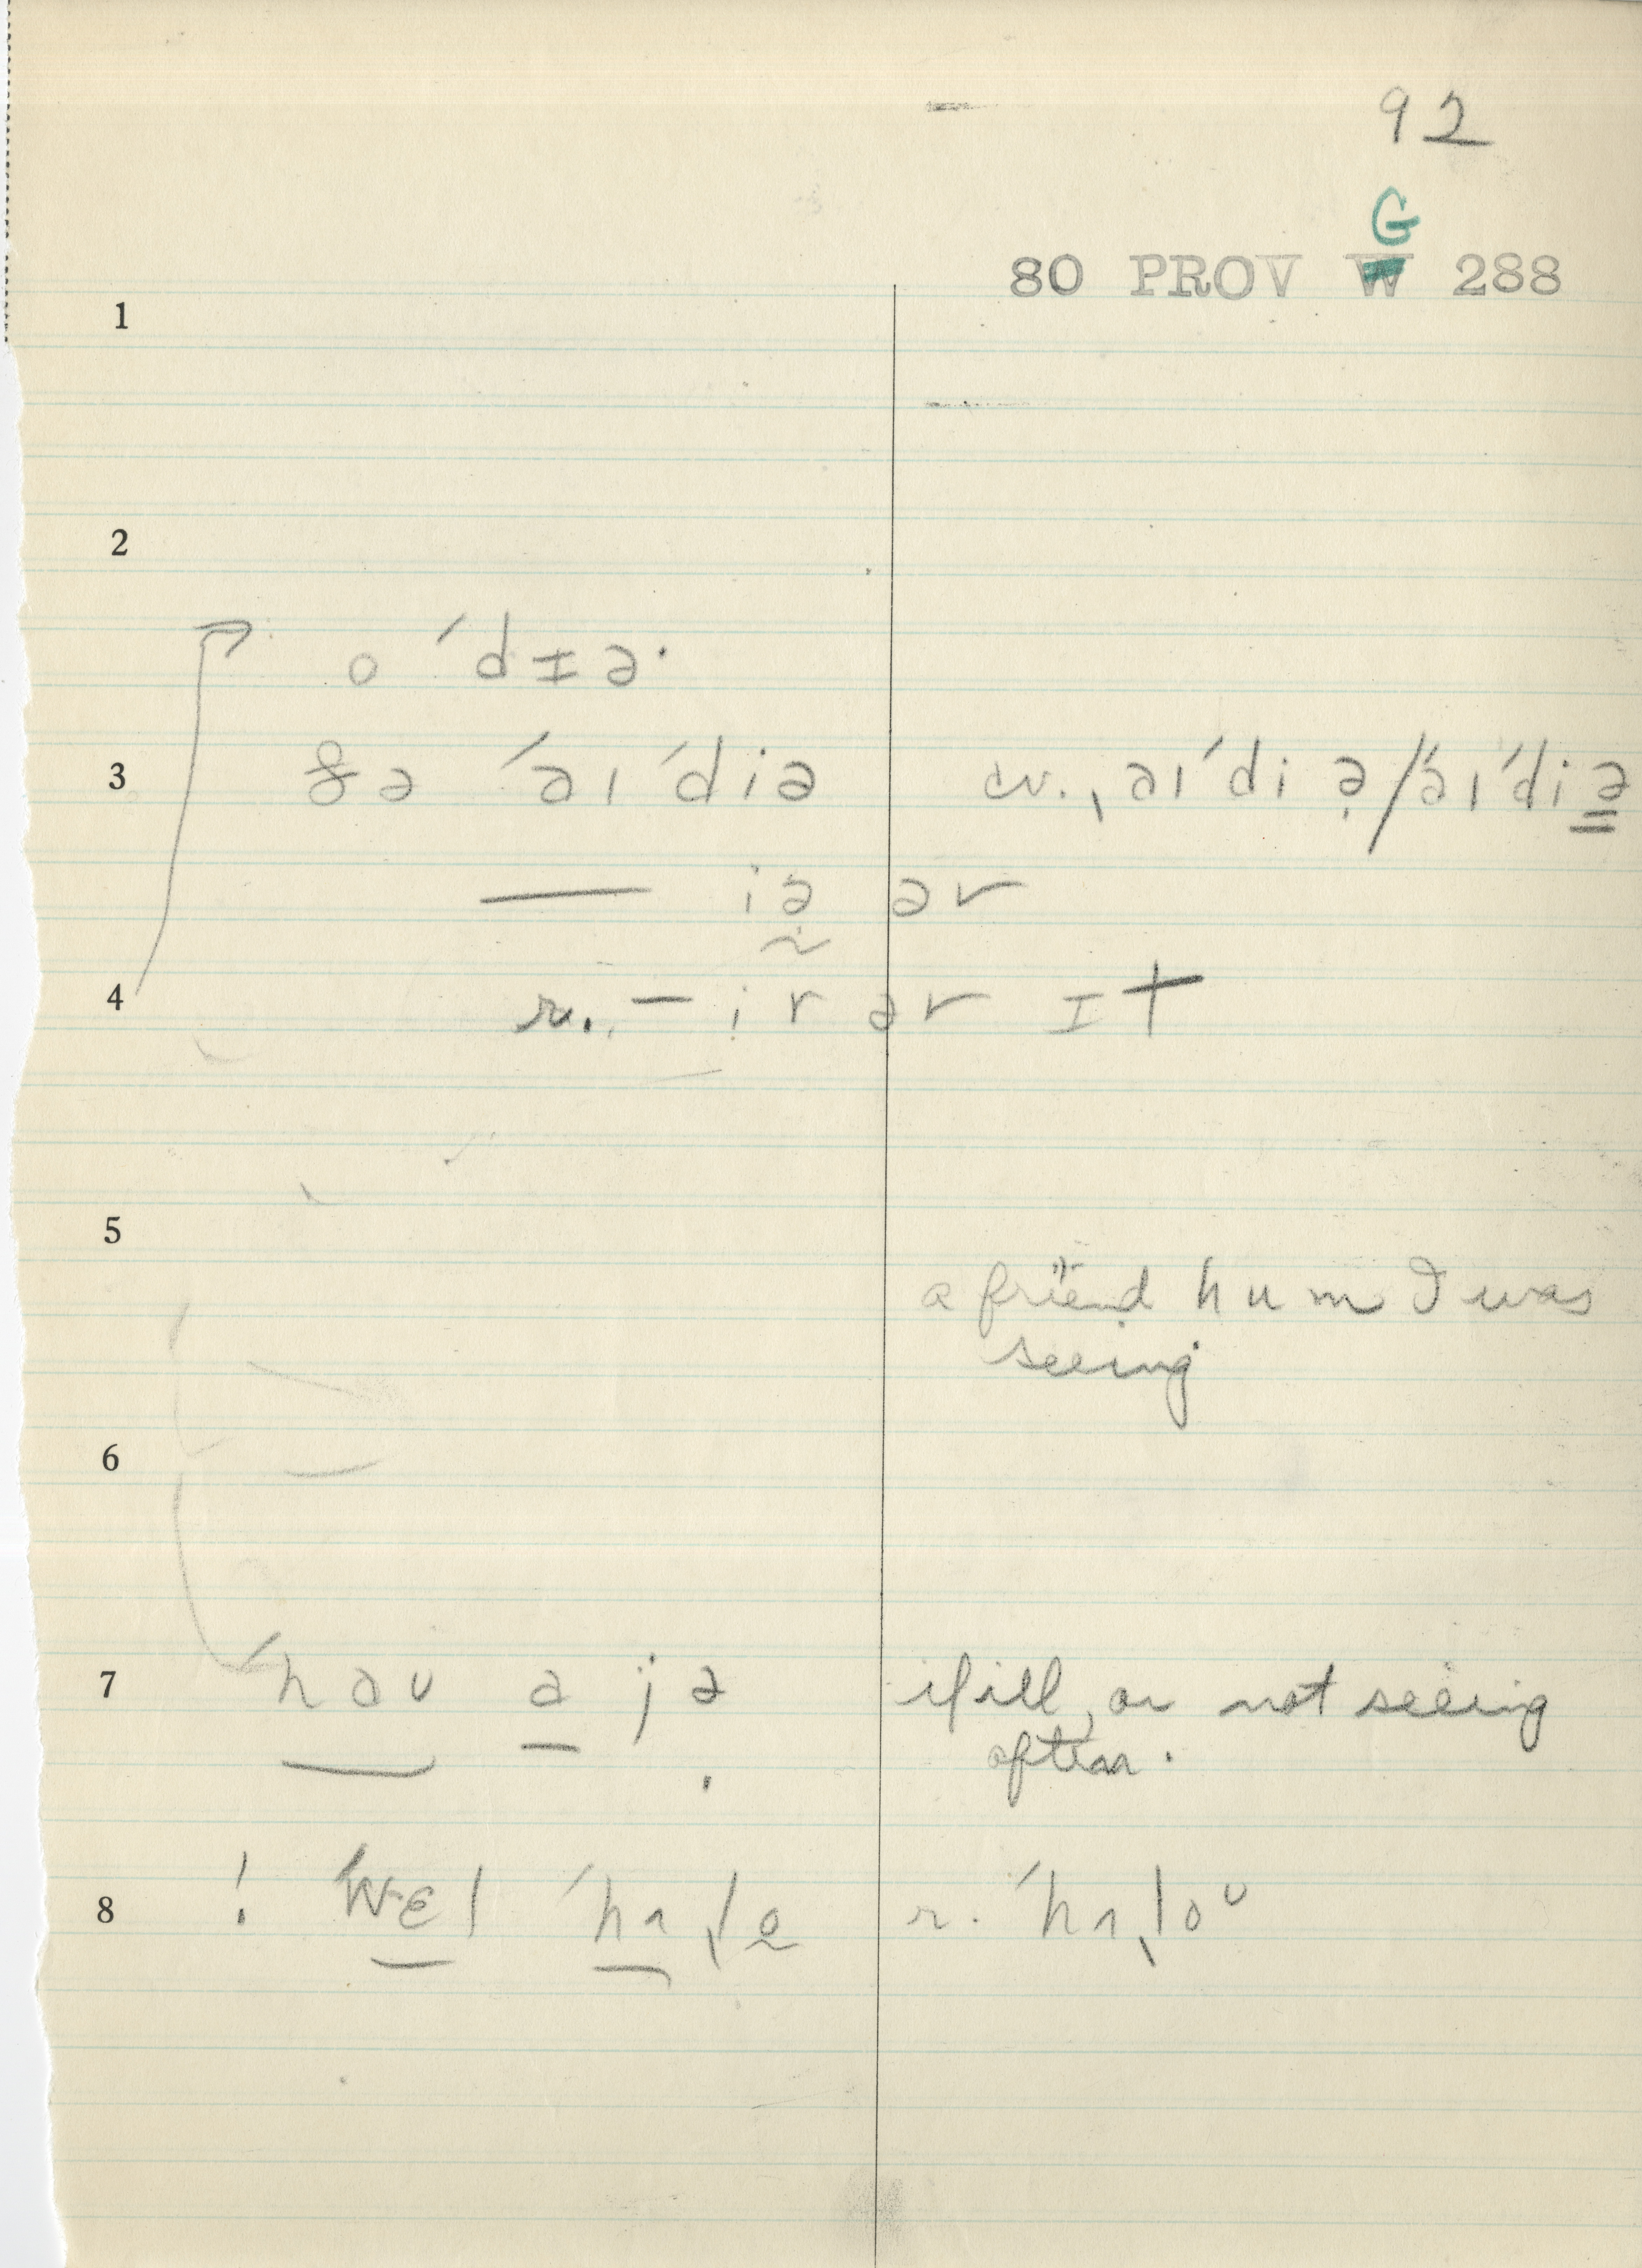 92
G
80 PROV W 288
1
2
o ˊdɪə·
3 ðə ˊəɪˊdiə cv.ˎ əɪˊdi ə̣/ˊəɪˊdiə̳
— iə̰ ər
4 r. – ir ər ɪt
5
a friend hum I was
seeing
6
7 ˊhəʊ a̲ jə̣ if ill, or not seeing
often.
8 ! ˊwɛl ˊhʌˎlo̰ r. ˊhʌˎloᴜ